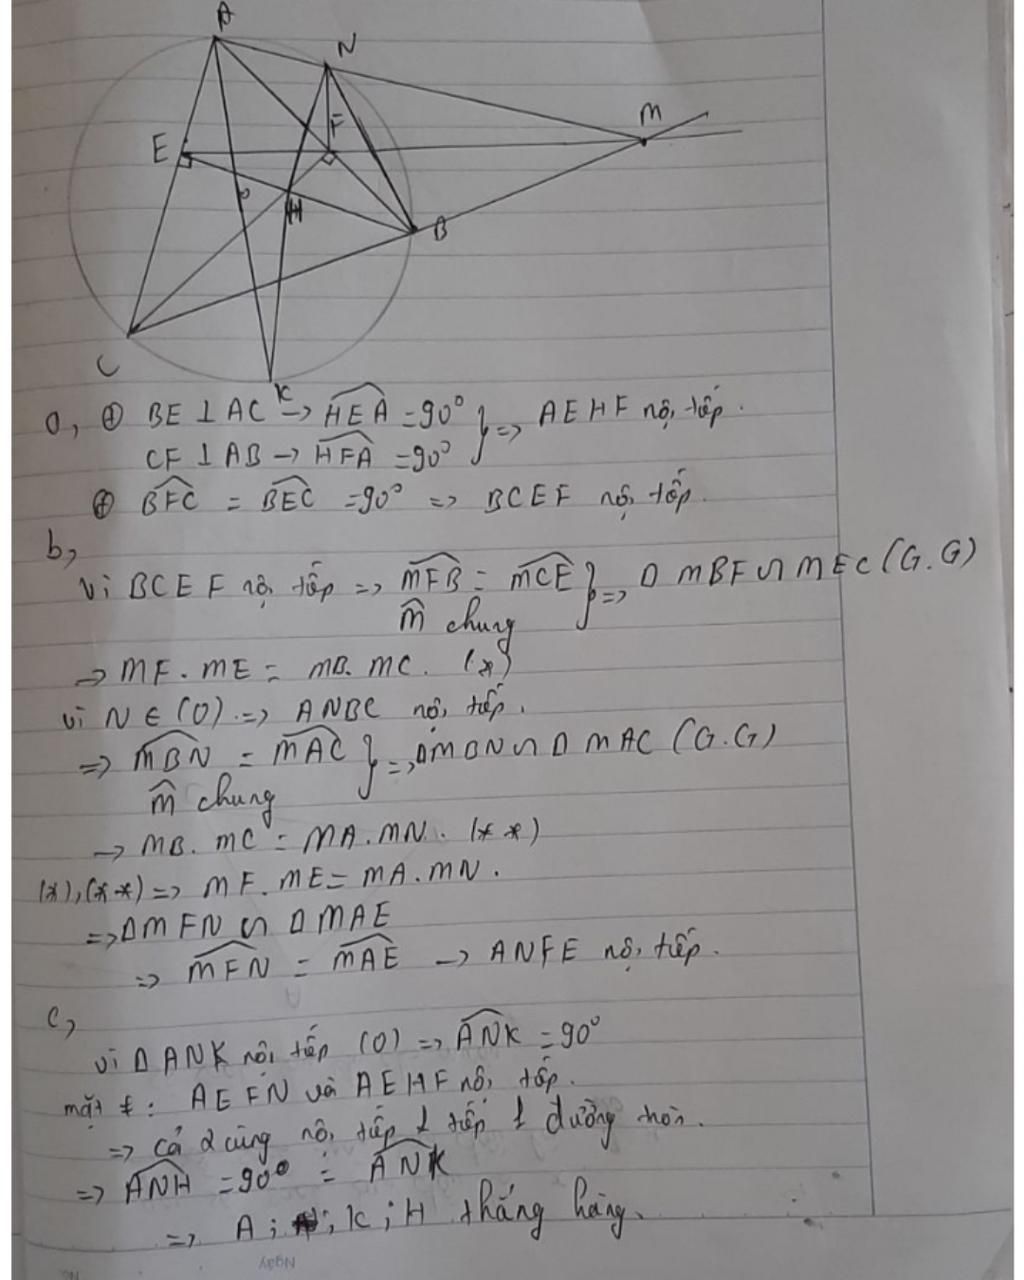 A
N
M
E
F
H
B
C
K
a, ⊕ BE ⊥ AC → \widehat{HEA} = 90° } => AEHF nội tiếp.
CF ⊥ AB → \widehat{HFA} = 90°
⊕ \widehat{BFC} = \widehat{BEC} = 90° => BCEF nội tiếp.
b,
Vì BCEF nội tiếp => \widehat{MFB} = \widehat{MCE} } => Δ MBF ∽ MEC (G.G)
\widehat{M} chung
→ MF. ME = MB. MC. (*)
Vì N ∈ (O) => ANBC nội tiếp.
=> \widehat{MBN} = \widehat{MAC} } => ΔMBN ∽ Δ MAC (G.G)
\widehat{M} chung
→ MB. MC = MA. MN. (**)
(*), (**) => MF. ME = MA. MN.
=> ΔMFN ∽ Δ MAE
=> \widehat{MFN} = \widehat{MAE} → ANFE nội tiếp.
c,
Vì Δ ANK nội tiếp (O) => \widehat{ANK} = 90°
mặt ≠: AEFN và AEHF nội tiếp.
=> cả 2 cùng nội tiếp 1 tiếp 1 đường tròn.
=> \widehat{ANH} = 90° = \widehat{ANK}
=> A; ; K; H thẳng hàng.
Ngày
No